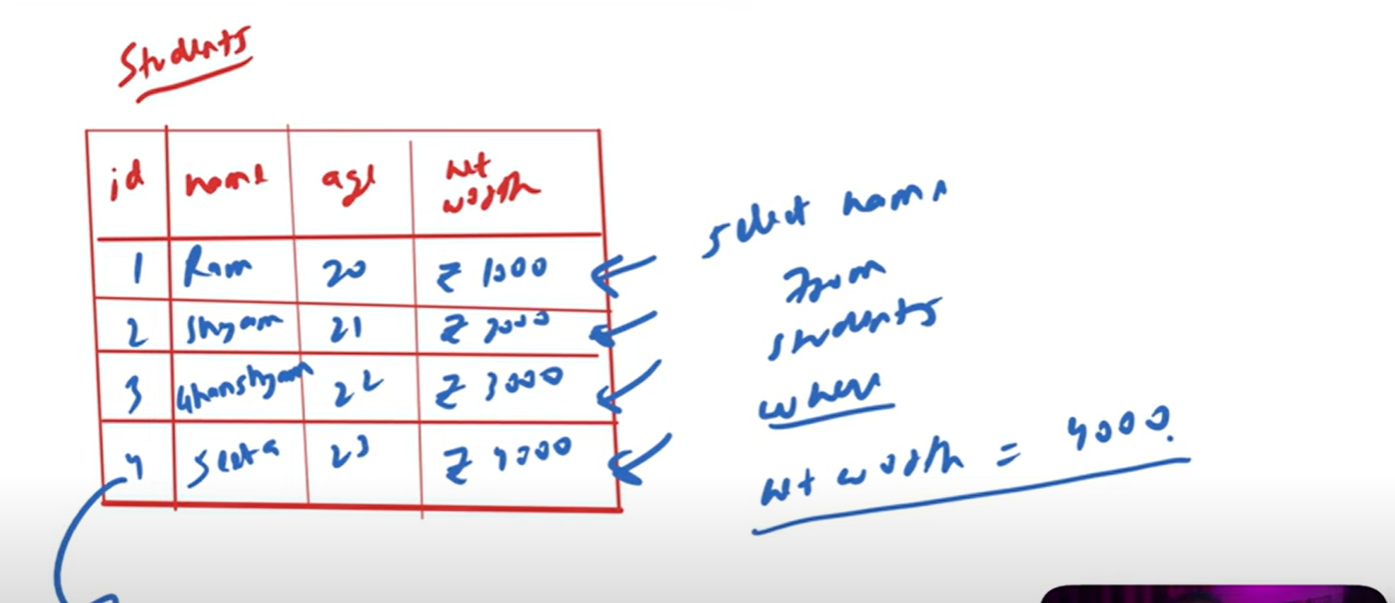 Students
id name age net worth
1 Ram 20 ₹ 1000
2 Shyam 21 ₹ 2000
3 Ghanshyam 22 ₹ 3000
4 Seeta 23 ₹ 4000
select name
from
students
where
net worth = 4000.